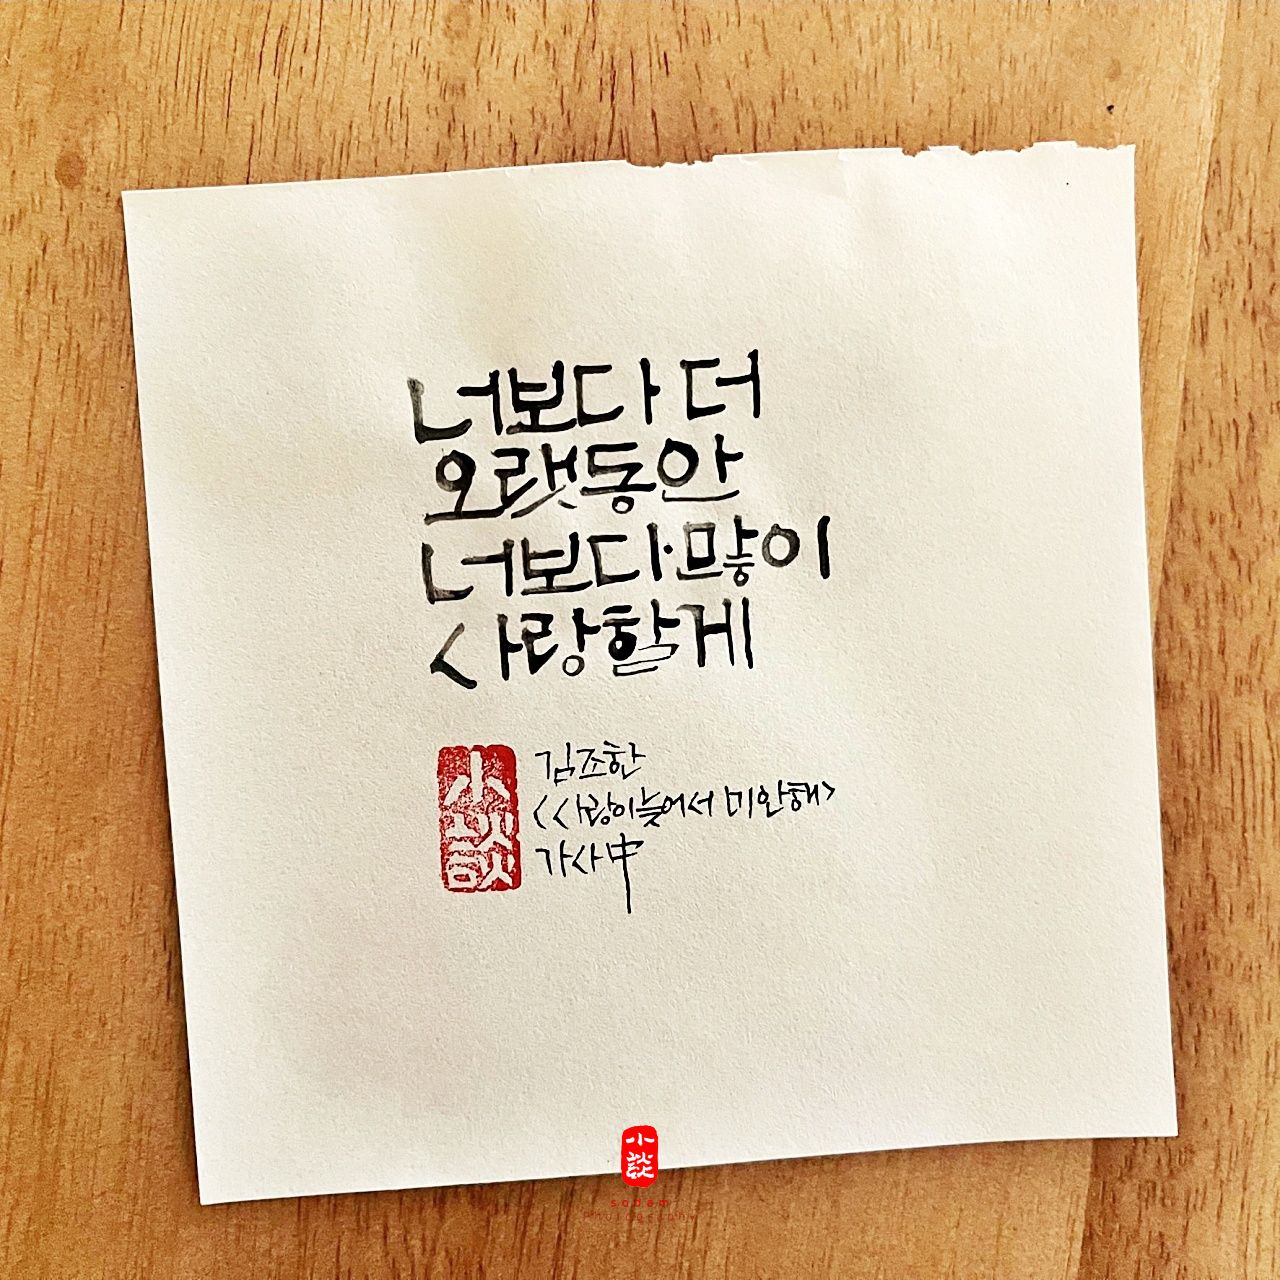 너보다 더
오랫동안
너보다 많이
사랑할게
小談
김조한
<사랑이 늦어서 미안해>
가사 中
小談
sodam
Photography